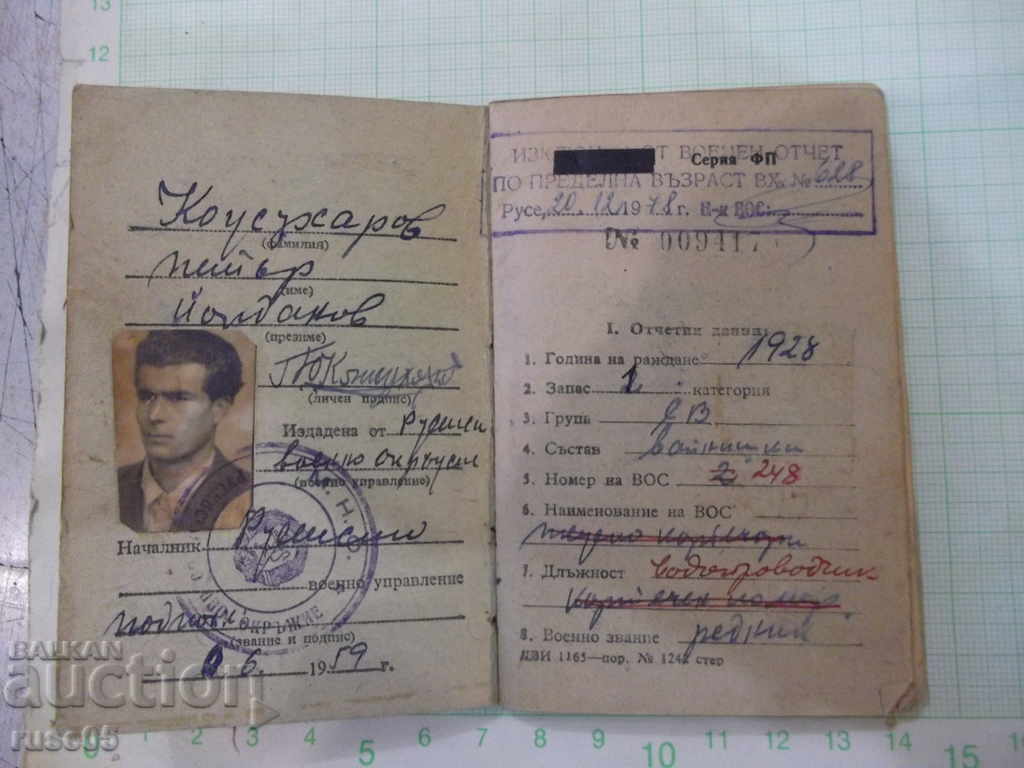 Коусухаров
(фамилия)
Петър
(име)
Йолдаков
(презиме)
(личен подпис)
Издадена от Русенско
военно окръжно
(военно управление)
Началник Русенско
военно управление
подполк
(звание и подпис)
6. 1959 г.
ОКРЪЖИЕ
от военен отчет
Серия ФП
по пределна възраст вх. № 628
Русе, 20.12.1978 г. Н-к ВОС:
№ 009417
I. Отчетни данни:
1. Година на раждане 1928
2. Запас 1 категория
3. Група СВ
4. Състав войнишки
5. Номер на ВОС 2 248
6. Наименование на ВОС
7. Длъжност водопроводчик
8. Военно звание редник
ДВИ 1165—пор. № 1242 стер
БАЛКАН
auction
rusc95
13
12
0 1 2 3 4 5 6 7 8 9 10 11 12 13 14 15 16